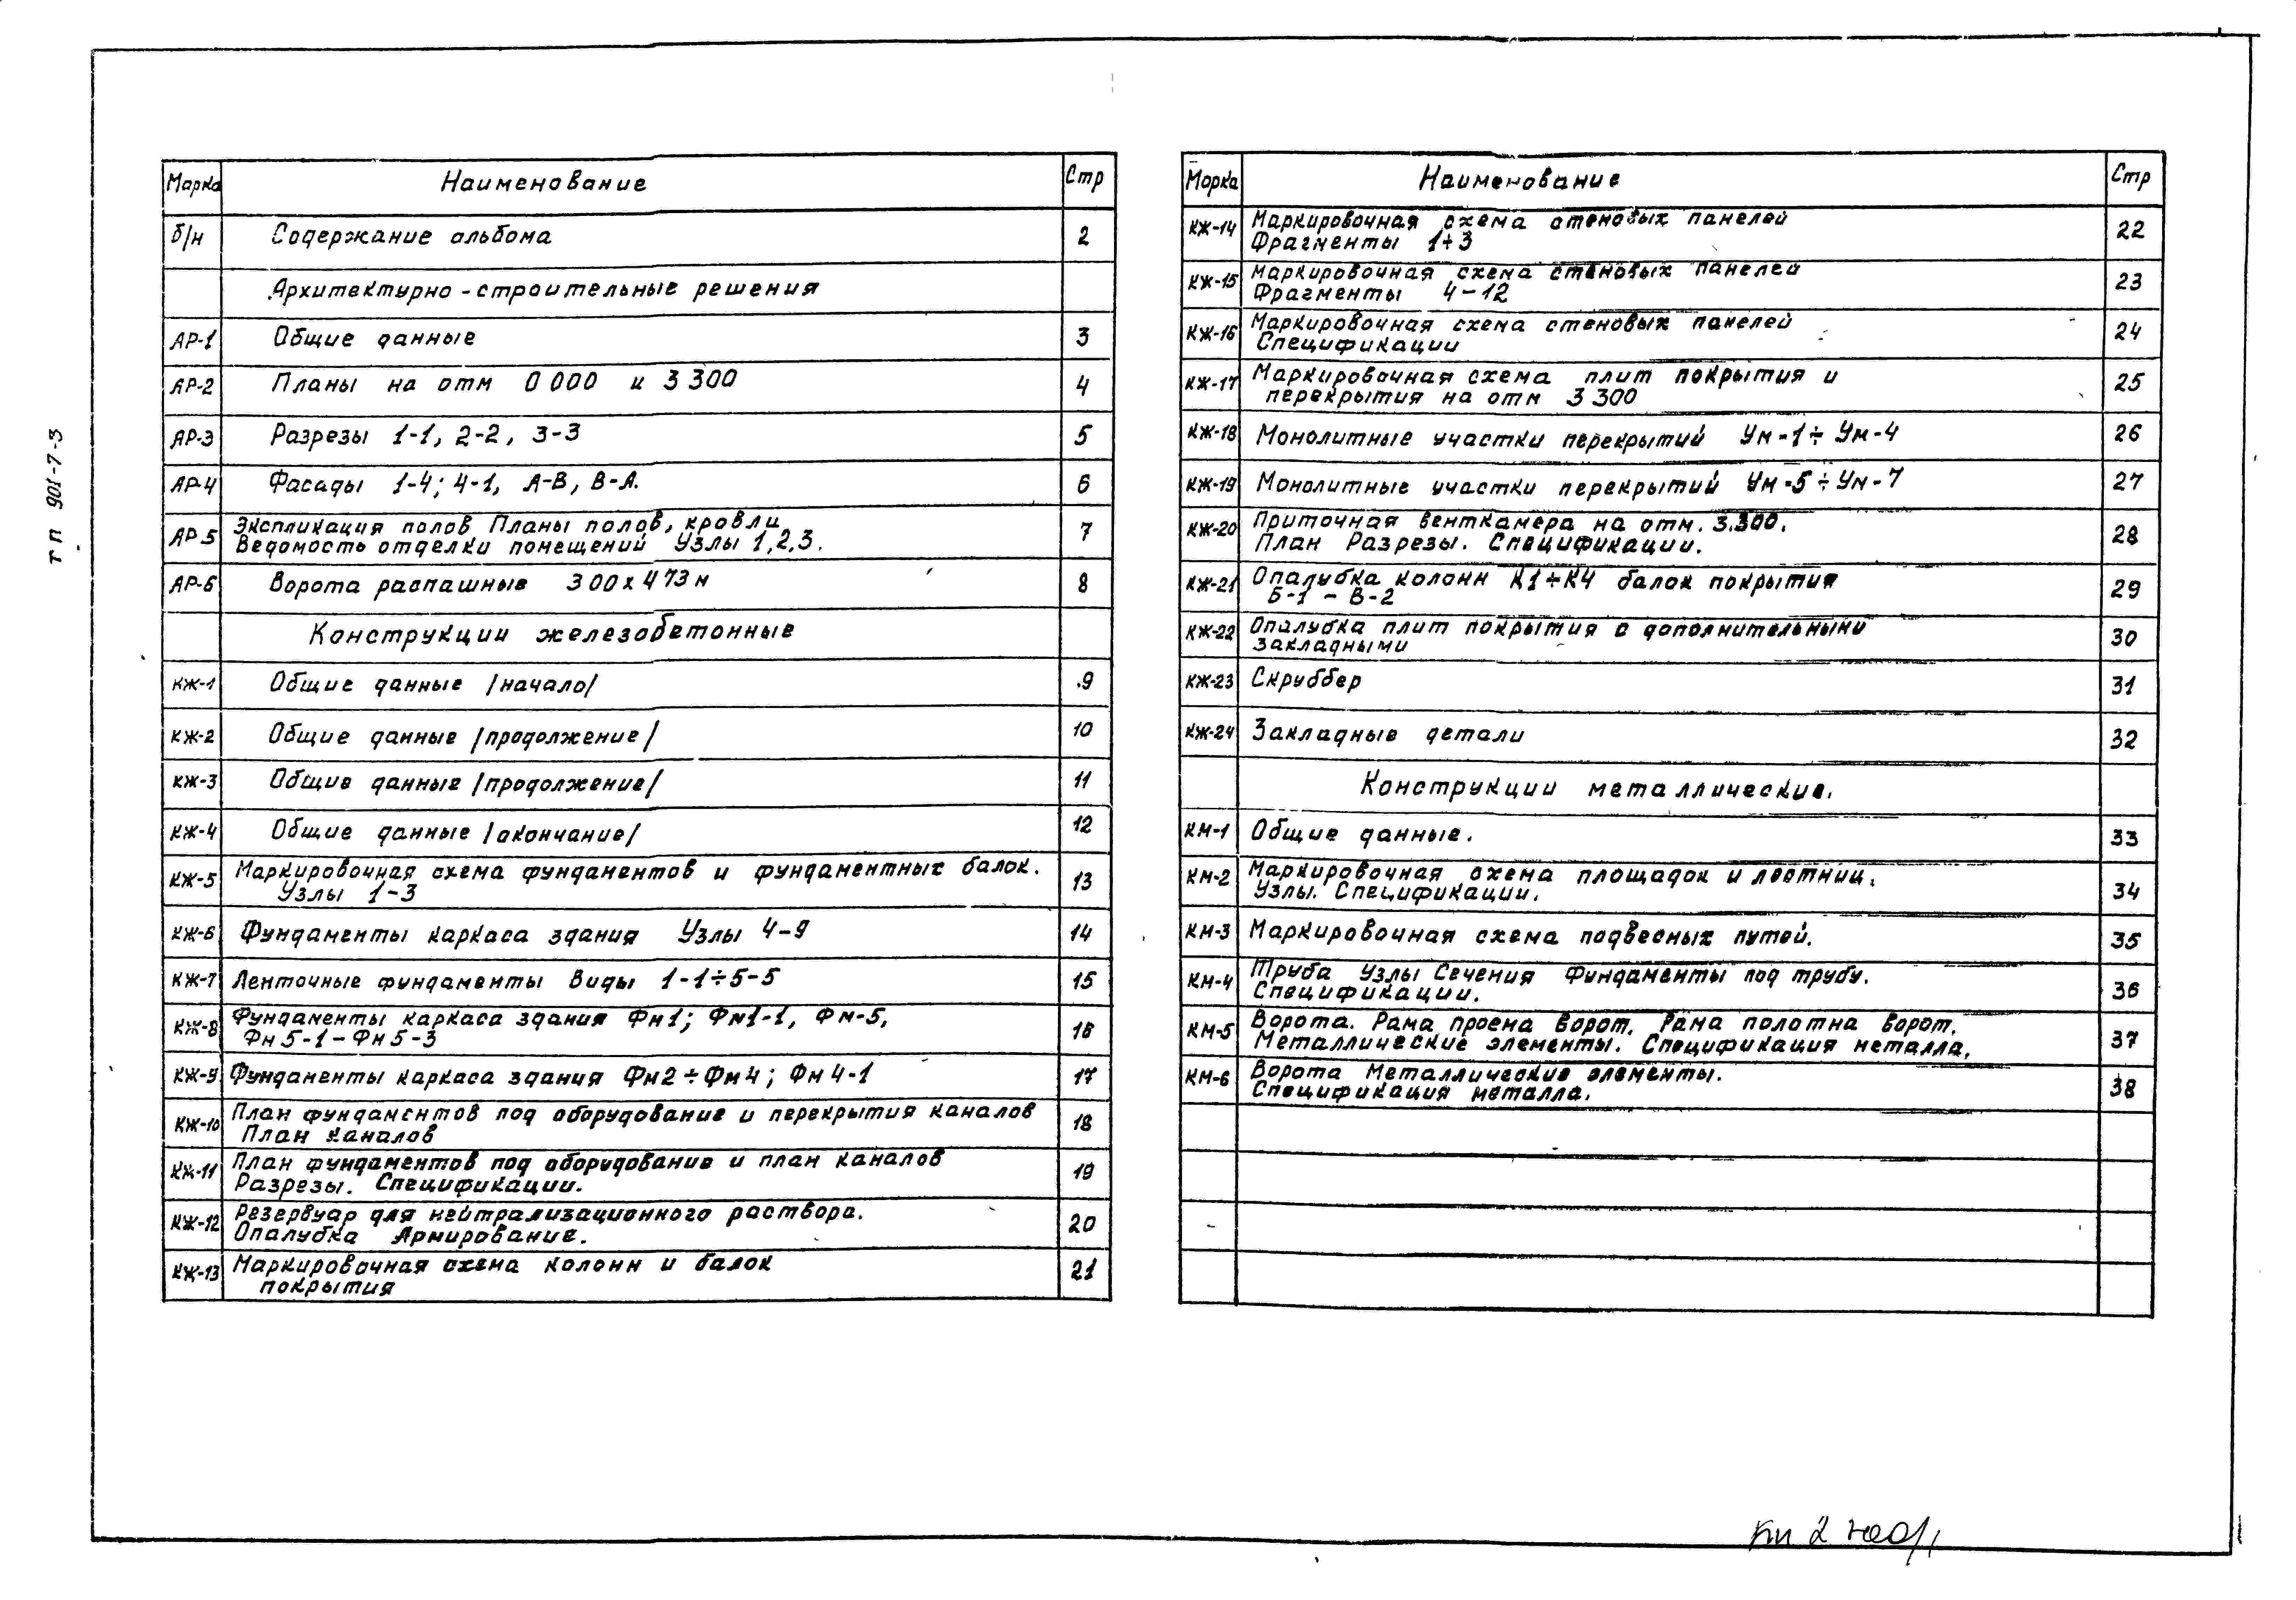 тп 901-7-3
Марка Наименование Стр
б/н Содержание альбома 2
Архитектурно-строительные решения
АР-1 Общие данные 3
АР-2 Планы на отм 0 000 и 3 300 4
АР-3 Разрезы 1-1, 2-2, 3-3 5
АР-4 Фасады 1-4; 4-1, А-В, В-А. 6
АР-5 Экспликация полов Планы полов, кровли
Ведомость отделки помещений Узлы 1,2,3. 7
АР-6 Ворота распашные 300х473н 8
Конструкции железобетонные
КЖ-1 Общие данные /начало/ 9
КЖ-2 Общие данные /продолжение/ 10
КЖ-3 Общие данные /продолжение/ 11
КЖ-4 Общие данные /окончание/ 12
КЖ-5 Маркировочная схема фундаментов и фундаментных балок.
Узлы 1-3 13
КЖ-6 Фундаменты каркаса здания Узлы 4-9 14
КЖ-7 Ленточные фундаменты Виды 1-1÷5-5 15
КЖ-8 Фундаменты каркаса здания Фм1; Фм1-1, Фм-5,
Фм 5-1-Фм 5-3 16
КЖ-9 Фундаменты каркаса здания Фм2÷Фм4; Фм 4-1 17
КЖ-10 План фундаментов под оборудование и перекрытия каналов
План каналов 18
КЖ-11 План фундаментов под оборудование и план каналов
Разрезы. Спецификации. 19
КЖ-12 Резервуар для нейтрализационного раствора.
Опалубка Армирование. 20
КЖ-13 Маркировочная схема колонн и балок
покрытия 21
Марка Наименование Стр
КЖ-14 Маркировочная схема стеновых панелей
Фрагменты 1÷3 22
КЖ-15 Маркировочная схема стеновых панелей
Фрагменты 4-12 23
КЖ-16 Маркировочная схема стеновых панелей
Спецификации 24
КЖ-17 Маркировочная схема плит покрытия и
перекрытия на отм 3 300 25
КЖ-18 Монолитные участки перекрытий Ум-1÷Ум-4 26
КЖ-19 Монолитные участки перекрытий Ум-5÷Ум-7 27
КЖ-20 Приточная венткамера на отм. 3.300.
План Разрезы. Спецификации. 28
КЖ-21 Опалубка колонн К1÷К4 балок покрытия
Б-1 - В-2 29
КЖ-22 Опалубка плит покрытия с дополнительными
закладными 30
КЖ-23 Скруббер 31
КЖ-24 Закладные детали 32
Конструкции металлические.
КМ-1 Общие данные. 33
КМ-2 Маркировочная схема площадок и лестниц.
Узлы. Спецификации. 34
КМ-3 Маркировочная схема подвесных путей. 35
КМ-4 Труба Узлы Сечения Фундаменты под трубу.
Спецификации. 36
КМ-5 Ворота. Рама проема ворот. Рама полотна ворот.
Металлические элементы. Спецификация металла. 37
КМ-6 Ворота Металлические элементы.
Спецификация металла. 38